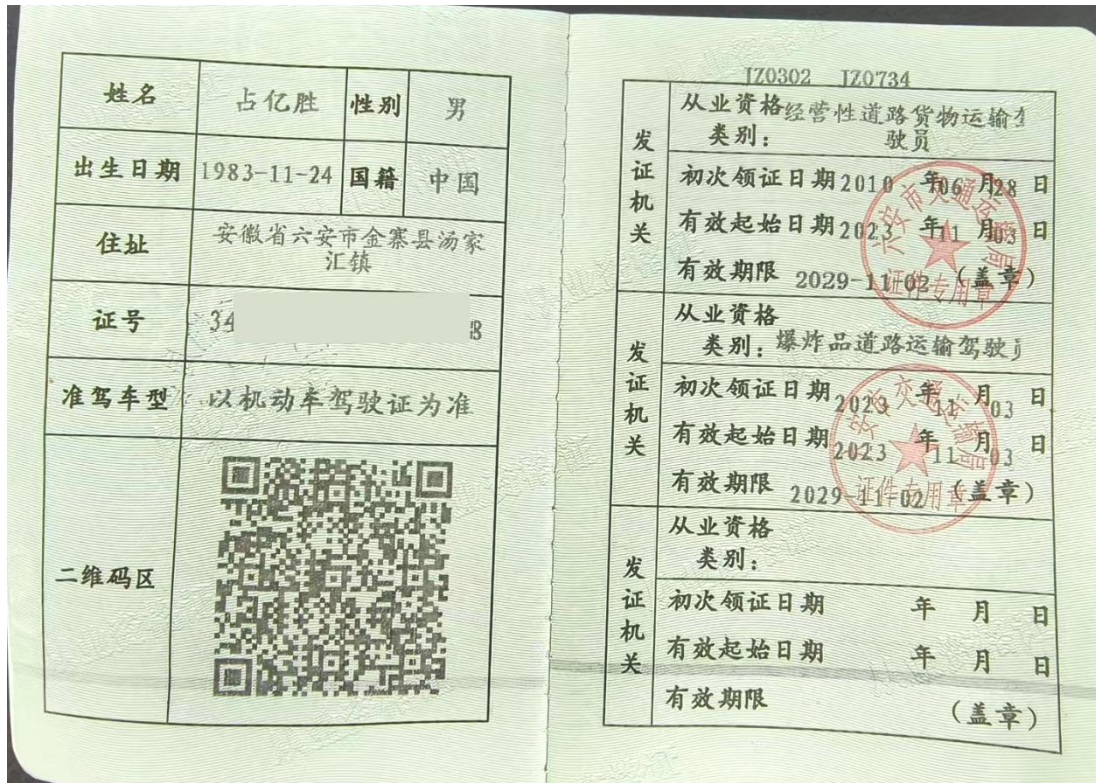 姓名 占亿胜 性别 男
出生日期 1983-11-24 国籍 中国
住址 安徽省六安市金寨县汤家
汇镇
证号 34 8
准驾车型 以机动车驾驶证为准
二维码区
JZ0302 JZ0734
发证机关
从业资格 经营性道路货物运输驾
类别: 驶员
初次领证日期 2010 年 06 月 28 日
有效起始日期 2023 年 11 月 03 日
有效期限 2029-11-02 (盖章)
六安市交通运输局
证件专用章
发证机关
从业资格
类别: 爆炸品道路运输驾驶员
初次领证日期 2023 年 11 月 03 日
有效起始日期 2023 年 11 月 03 日
有效期限 2029-11-02 (盖章)
六安市交通运输局
证件专用章
发证机关
从业资格
类别:
初次领证日期 年 月 日
有效起始日期 年 月 日
有效期限 (盖章)